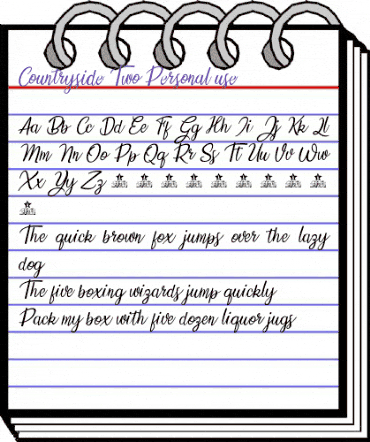 Countryside Two Personal use
Aa Bb Cc Dd Ee Ff Gg Hh Ii Jj Kk Ll
Mm Nn Oo Pp Qq Rr Ss Tt Uu Vv Ww
Xx Yy Zz
The quick brown fox jumps over the lazy
dog
The five boxing wizards jump quickly
Pack my box with five dozen liquor jugs